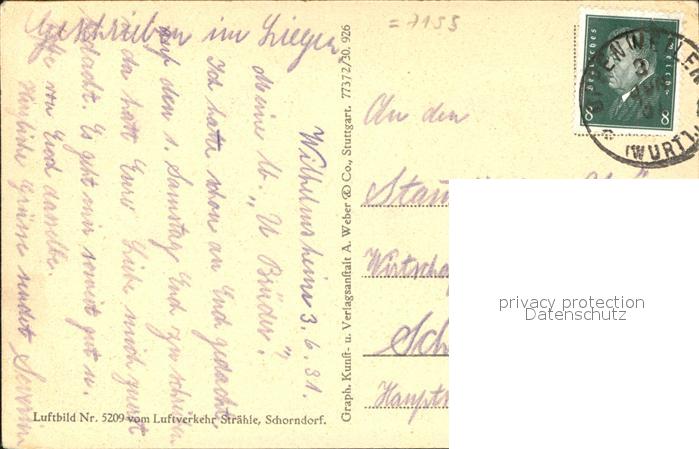 Geschrieben im Liegen
= 7155
Wilhelmsheim 3.6.31.
Meine lb. "U Brüder".
Ich hatte schon an Euch gedacht
auf den 1. Samstag Euch zu schreiben
da hatt Eure Liebe mich zuerst
bedacht. Es geht mir soweit gut u.
hoffe von Euch dasselbe.
Herzliche Grüße sendet
Luftbild Nr. 5209 vom Luftverkehr Strähle, Schorndorf.
Graph. Kunst- u. Verlagsanstalt A. Weber & Co., Stuttgart. 77372/30. 926
An den
Deutsches Reich
8 8
(WÜRTT)
privacy protection
Datenschutz